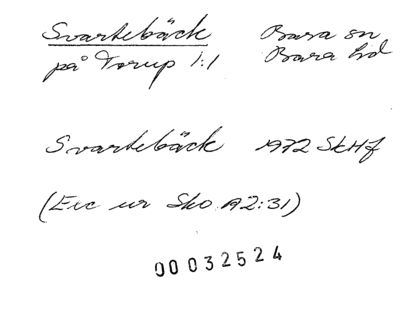 Svartebäck Bara sn
på Torup 1:1 Bara hd
Svartebäck 1972 SkHf
(Exc ur Sko A2:31)
00032524